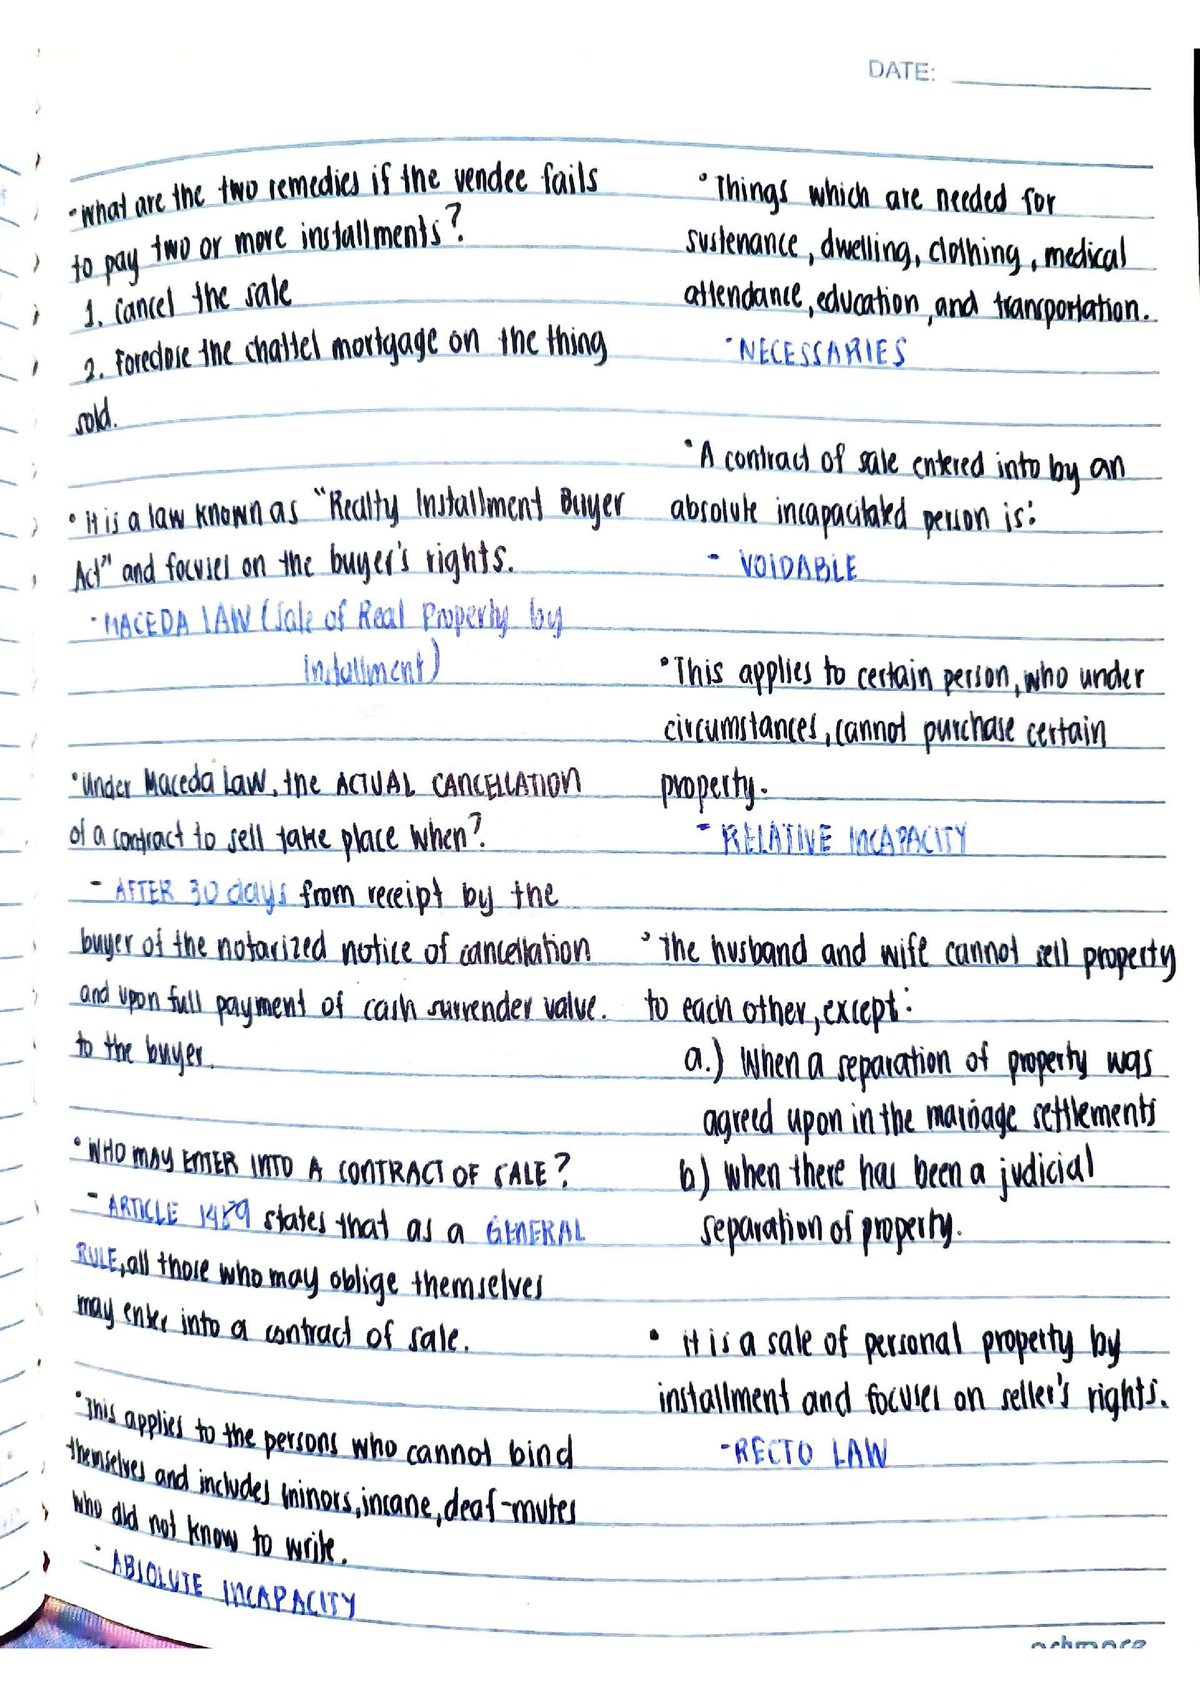 DATE:
•What are the two remedies if the vendee fails
to pay two or more installments?
1. Cancel the sale
2. Foreclose the chattel mortgage on the thing
sold.
•it is a law known as "Realty Installment Buyer
Act" and focuses on the buyer's rights.
-MACEDA LAW (Sale of Real Property by
Installment)
•Under Maceda Law, the ACTUAL CANCELLATION
of a contract to sell take place when?
- AFTER 30 days from receipt by the
buyer of the notarized notice of cancellation
and upon full payment of cash surrender value.
to the buyer.
•WHO MAY ENTER INTO A CONTRACT OF SALE?
- ARTICLE 1489 states that as a GENERAL
RULE, all those who may oblige themselves
may enter into a contract of sale.
•This applies to the persons who cannot bind
themselves and includes minors, insane, deaf-mutes
who did not know to write.
- ABSOLUTE INCAPACITY
•Things which are needed for
sustenance, dwelling, clothing, medical
attendance, education, and transportation.
-NECESSARIES
•A contract of sale entered into by an
absolute incapacitated person is:
- VOIDABLE
•This applies to certain person, who under
circumstances, cannot purchase certain
property.
- RELATIVE INCAPACITY
•The husband and wife cannot sell property
to each other, except:
a.) When a separation of property was
agreed upon in the marriage settlements
b) when there has been a judicial
separation of property.
• it is a sale of personal property by
installment and focuses on seller's rights.
-RECTO LAW